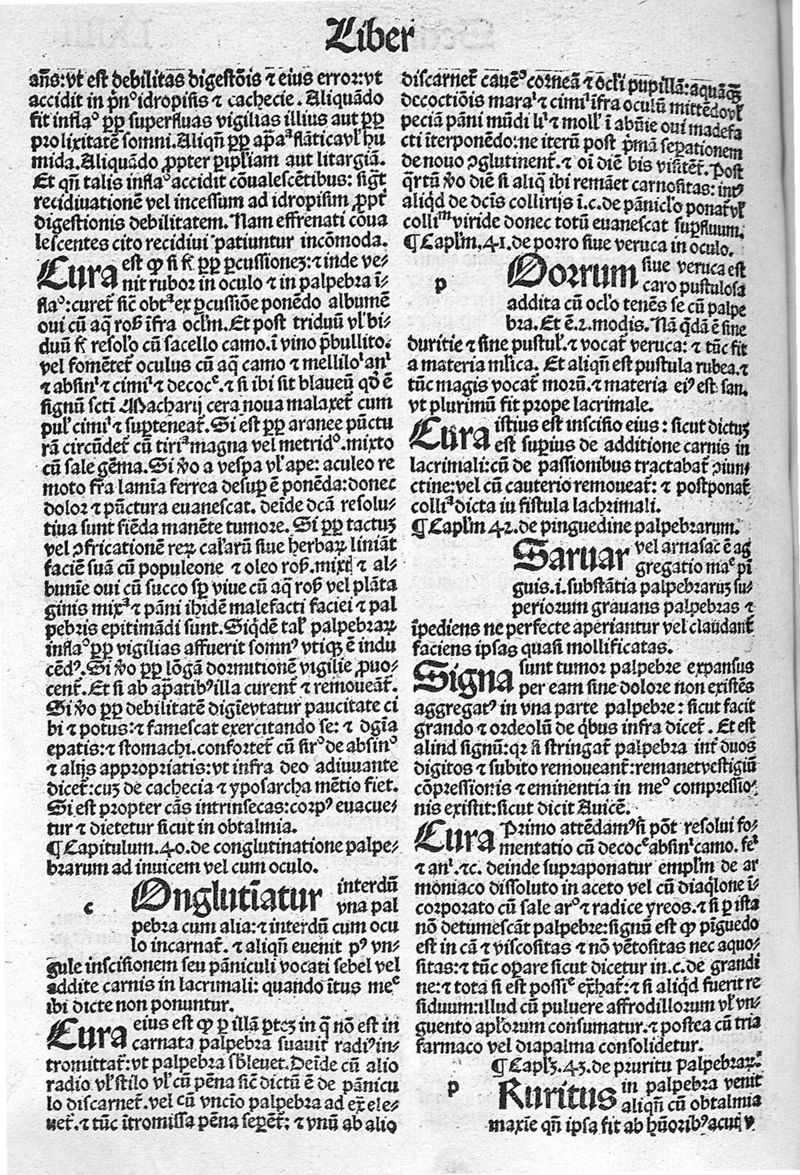 Liber
añs: vt est debilitas digestõis ⁊ eius error: vt
accidit in pñº idropisis ⁊ cachecie. Aliquãdo
fit inflaº ꝓp superfluas vigilias illius aut ꝓp
prolixitatem somni. Aliqñ ꝓp
mida. Aliquãdo ꝓpter aut litargiã.
Et qñ talis inflaº accidit cõualescẽtibus: sigt̃
recidiuationẽ vel incessum ad idropisim ꝓpt̃
digestionis debilitatem. Nam effrenati cõua
lescentes cito recidiui patiuntur incõmoda.
Cura est ꝙ si ꝓp ꝑcussionez: ⁊ inde ve-
nit rubor in oculo ⁊ in palpebra ĩ-
flaº: curet̃ sic̃ ex ꝑcussiõe ponẽdo albumẽ
oui cũ aq̃ roß ĩfra ocl̃m. Et post triduũ vl̃ bi-
duũ resolº cũ sacello camo. ĩ vino p̃bullito.
vel fomẽtet̃ oculus cũ aq̃ camo ⁊ mellilo¹ an¹
⁊ absin¹ ⁊ cimi¹ ⁊ decocᵉ. ⁊ si ibi sit blaueũ qd̃ ẽ
signũ sct̃i Macharij cera noua malaxet̃ cum
pul̃ cimi¹ ⁊ suꝑteneat̃. Si est ꝓp aranee pũctu
rã circũdet̃ cũ tiriᵃ magna vel metridº. mixto
cũ sale gẽma. Si ṽo a vespa vl̃ ape: aculeo re
moto fr̃a lamĩa ferrea desuꝑ ẽ ponẽda: donec
dolor ⁊ pũctura euanescat. deĩde dcã resolu-
tiua sunt fiẽda manẽte tumore. Si ꝓp tactuz
vel ɔfricationẽ reꝝ cal̃arũ siue herbaꝝ liniãt
faciẽ suã cũ populeone ⁊ oleo roß. mixt ⁊ al-
bumĩe oui cũ succo sꝑ viue cũ aq̃ roß vel plãta
ginis mixᵃ ⁊ pãni ibidẽ malefacti faciei ⁊ pal
pebris epitimãdi sunt. Siqd̃ẽ tal̃ palpebraꝝ
inflaº ꝓp vigilias affuerit somnꝰ vtiqꝫ ẽ indu
cẽdꝰ. Si ṽo ꝓp lõgã dormitionẽ vigilie ꝓuo-
cent̃. Et si ab illa curent̃ ⁊ remoueãt̃.
Si ṽo ꝓp debilitatẽ digẽ vtatur paucitate ci
bi ⁊ potus: ⁊ famescat exercitando se: ⁊ dg̃ia
epatis: ⁊ stomachi. confortet̃ cũ sirº de absinº
⁊ alijs appropriatis: vt infra deo adiuuante
dicet̃: cuz de cachecia ⁊ yposarcha mẽtio fiet.
Si est propter cãs intrinsecas: corpꝰ euacue-
tur ⁊ dietetur sicut in obtalmia.
¶ Capitulum. 40. de conglutinatione palpe-
brarum ad inuicem vel cum oculo.
c Onglutĩatur interdũ
vna pal
pebra cum alia: ⁊ interdũ cum ocu
lo incarnat̃. ⁊ aliqñ euenit pꝰ vn-
gule inscisionem seu pãniculi vocati sebel vel
addite carnis in lacrimali: quando ĩtus meᶜ
ibi dicte non ponuntur.
Cura eius est ꝙ ꝑ illã ꝑtez in q̃ nõ est in
carnata palpebra suauit̃ radiꝰ in-
tromittat̃: vt palpebra sb̃leuet̃. Deĩde cũ alio
radio vl̃ stilo vl̃ cũ pẽna sic̃ dictũ ẽ de pãnicu
lo discarnet̃. vel cũ vncio palpebra ad ex̃ ele-
uet̃. ⁊ tũc ĩtromissa pẽna seꝑet̃: ⁊ vnũ ab alio
discarnet̃ cauẽº corneã ⁊ ocl̃i pupillã: aquãqꝫ
decoctiõis mara¹ ⁊ cimi¹ ĩfra oculũ mittẽdo vl̃
peciã pãni mũdi li¹ ⁊ moll̃ ĩ abũie oui madefa
cti ĩterponẽdo: ne iterũ post p̃mã seꝑationem
de nouo ɔglutinent̃. ⁊ oĩ diẽ bis visitet̃. Post
q̃rtũ ṽo diẽ si aliq̃ ibi remãet carnositas: intꝰ
aliqd̃ de dcĩs collirijs ĩ. c. de pãnicl̃o ponat̃ vl̃
colliᵐ viride donec totũ euanescat suꝑfluum.
¶ Capl̃m. 41. de porro siue veruca in oculo.
p Oorrum siue veruca est
caro pustulosa
addita cũ ocl̃o tenẽs se cũ palpe
bra. Et ẽ. 2. modis. Nã qd̃ã ẽ sine
duritie ⁊ sine pustul̃. ⁊ vocat̃ veruca: ⁊ tũc fit
a materia ml̃ica. Et aliqñ est pustula rubea. ⁊
tũc magis vocat̃ morũ. ⁊ materia eiꝰ est san.
vt plurimũ fit prope lacrimale.
Cura istius est inscisio eius: sicut dictuz
est suꝑius de additione carnis in
lacrimali: cũ de passionibus tractabat̃ ɔiun-
ctine: vel cũ cauterio remoueat̃: ⁊ postponat̃
colliᵃ dicta iu fistula lachrimali.
¶ Capl̃m 42. de pinguedine palpebrarum.
Saruar vel arnasac ẽ ag
gregatio maᵉ pĩ
guis. i. substãtia palpebraruz su-
periorum grauans palpebras ⁊
ĩpediens ne perfecte aperiantur vel claudant̃
faciens ipsas quasi mollificatas.
Signa sunt tumor palpebre expansus
per eam sine dolore non existẽs
aggregatꝰ in vna parte palpebre: sicut facit
grando ⁊ ordeolũ de qb̃us infra dicet̃. Et est
aliud signũ: qr ã stringat̃ palpebra int̃ duos
digitos ⁊ subito remoueant̃: remanet vestigiũ
cõpressiõis ⁊ eminentia in meº compressio-
nis existit: sicut dicit Auicẽ.
Cura Primo attẽdamꝰ si põt resolui fo-
mentatio cũ decocᵉ absin¹ camo. fe¹
⁊ an¹. ⁊c. deinde supraponatur empl̃m de ar
moniaco dissoluto in aceto vel cũ diaq̃lone ĩ-
corporato cũ sale arº ⁊ radice yreos. ⁊ si ꝑ ista
nõ detumescãt palpebre: signũ est ꝙ pĩguedo
est in cã ⁊ viscositas ⁊ nõ vẽtositas nec aquo-
sitas: ⁊ tũc oꝑare sicut dicetur in. c. de grandi
ne: ⁊ tota si est possᵉ exhat̃: ⁊ si aliqd̃ fuerit re
siduum: illud cũ puluere affrodillorum vl̃ vn-
guento apl̃orum consumatur. ⁊ postea cũ tria
farmaco vel diapalma consolidetur.
¶ Capl̃z. 43. de pruritu palpebraꝝ.
p Ruritus in palpebra venit
aliqñ cũ obtalmia
maxie qñ ipsa fit ab hũoribꝰ